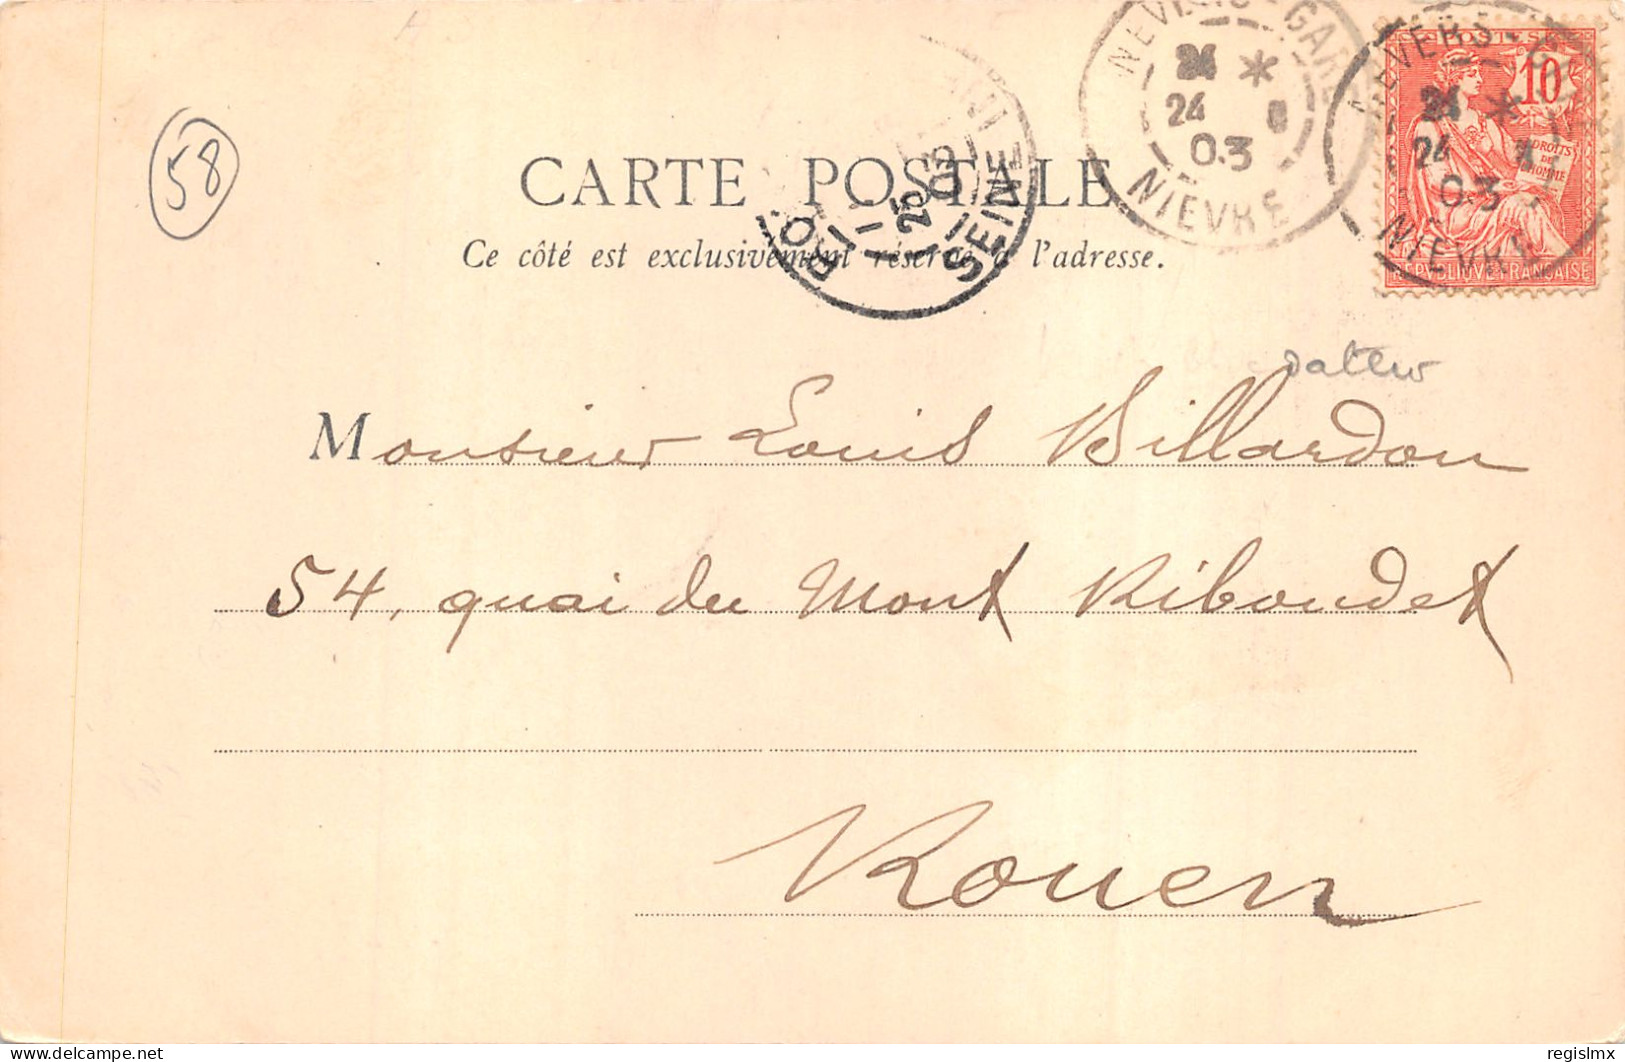 58
NEVERS-GARE
24 *
24
03
NIEVRE
NEVERS-
24 *
24
03
NIEVRE
POSTES
10
DROITS
DE
L'HOMME
REPVBLIQVE FRANÇAISE
CARTE POSTALE
25
03
SEINE
Ce côté est exclusivement réservé à l'adresse.
Monsieur Louis Billardon
54, quai du Mont Riboudet
Rouen
delcampe.net
regislmx